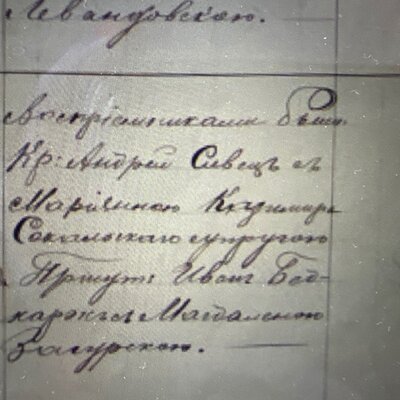 Левандовскою.
Воспріемниками были
Кр: Андрей Сивецъ съ
Маріянною Казимира
Сокальскаго супругою
Присут: Иванъ Бод-
нарэкъ съ Магдаленою
Загурскою.